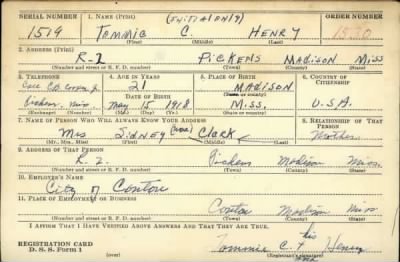 SERIAL NUMBER 1. NAME (Print) (INITIAL ONLY) ORDER NUMBER
1519 Tommie C. HENRY 1530
(First) (Middle) (Last)
2. ADDRESS (Print)
R-2 PICKENS MADISON MISS
(Number and street or R. F. D. number) (Town) (County) (State)
3. TELEPHONE 4. AGE IN YEARS 5. PLACE OF BIRTH 6. COUNTRY OF CITIZENSHIP
Care 21 MADISON
DATE OF BIRTH (Town or county)
Pickens, Miss May 15 1918 MISS. U.S.A.
(Exchange) (Number) (Mo.) (Day) (Yr.) (State or country)
7. NAME OF PERSON WHO WILL ALWAYS KNOW YOUR ADDRESS 8. RELATIONSHIP OF THAT PERSON
Mrs Sidney Clark Mother
(Mr., Mrs., Miss) (First) (Middle) (Last)
9. ADDRESS OF THAT PERSON
R-2. Pickens Madison Miss.
(Number and street or R. F. D. number) (Town) (County) (State)
10. EMPLOYER'S NAME
City of Canton
11. PLACE OF EMPLOYMENT OR BUSINESS
Canton Madison Miss
(Number and street or R. F. D. number) (Town) (County) (State)
I AFFIRM THAT I HAVE VERIFIED ABOVE ANSWERS AND THAT THEY ARE TRUE.
his
REGISTRATION CARD Tommie C. + Henry
D. S. S. Form 1 (over) (Registrant's signature)
mark